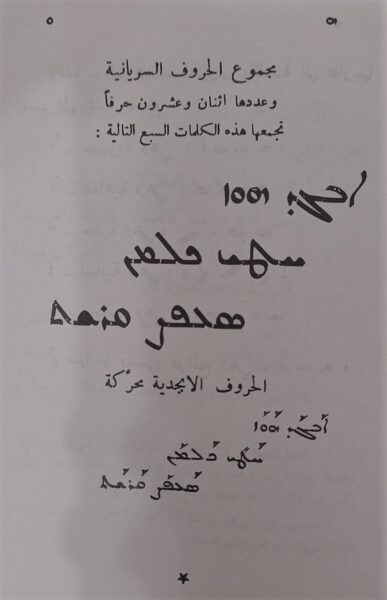 ٥ ܗ
مجموع الحروف السريانية
وعددها اثنان وعشرون حرفاً
تجمعها هذه الكلمات السبع التالية :
ܐܒܓܕ ܗܘܙ
ܚܛܝ ܟܠܡܢ
ܣܥܦܨ ܩܪܫܬ
الحروف الابجدية محرّكة
ܐܰܒܓܰܕ ܗܰܘܰܙ
ܚܰܛܝ ܟܰܠܡܰܢ
ܣܰܥܦܰܨ ܩܰܪܫܰܬ